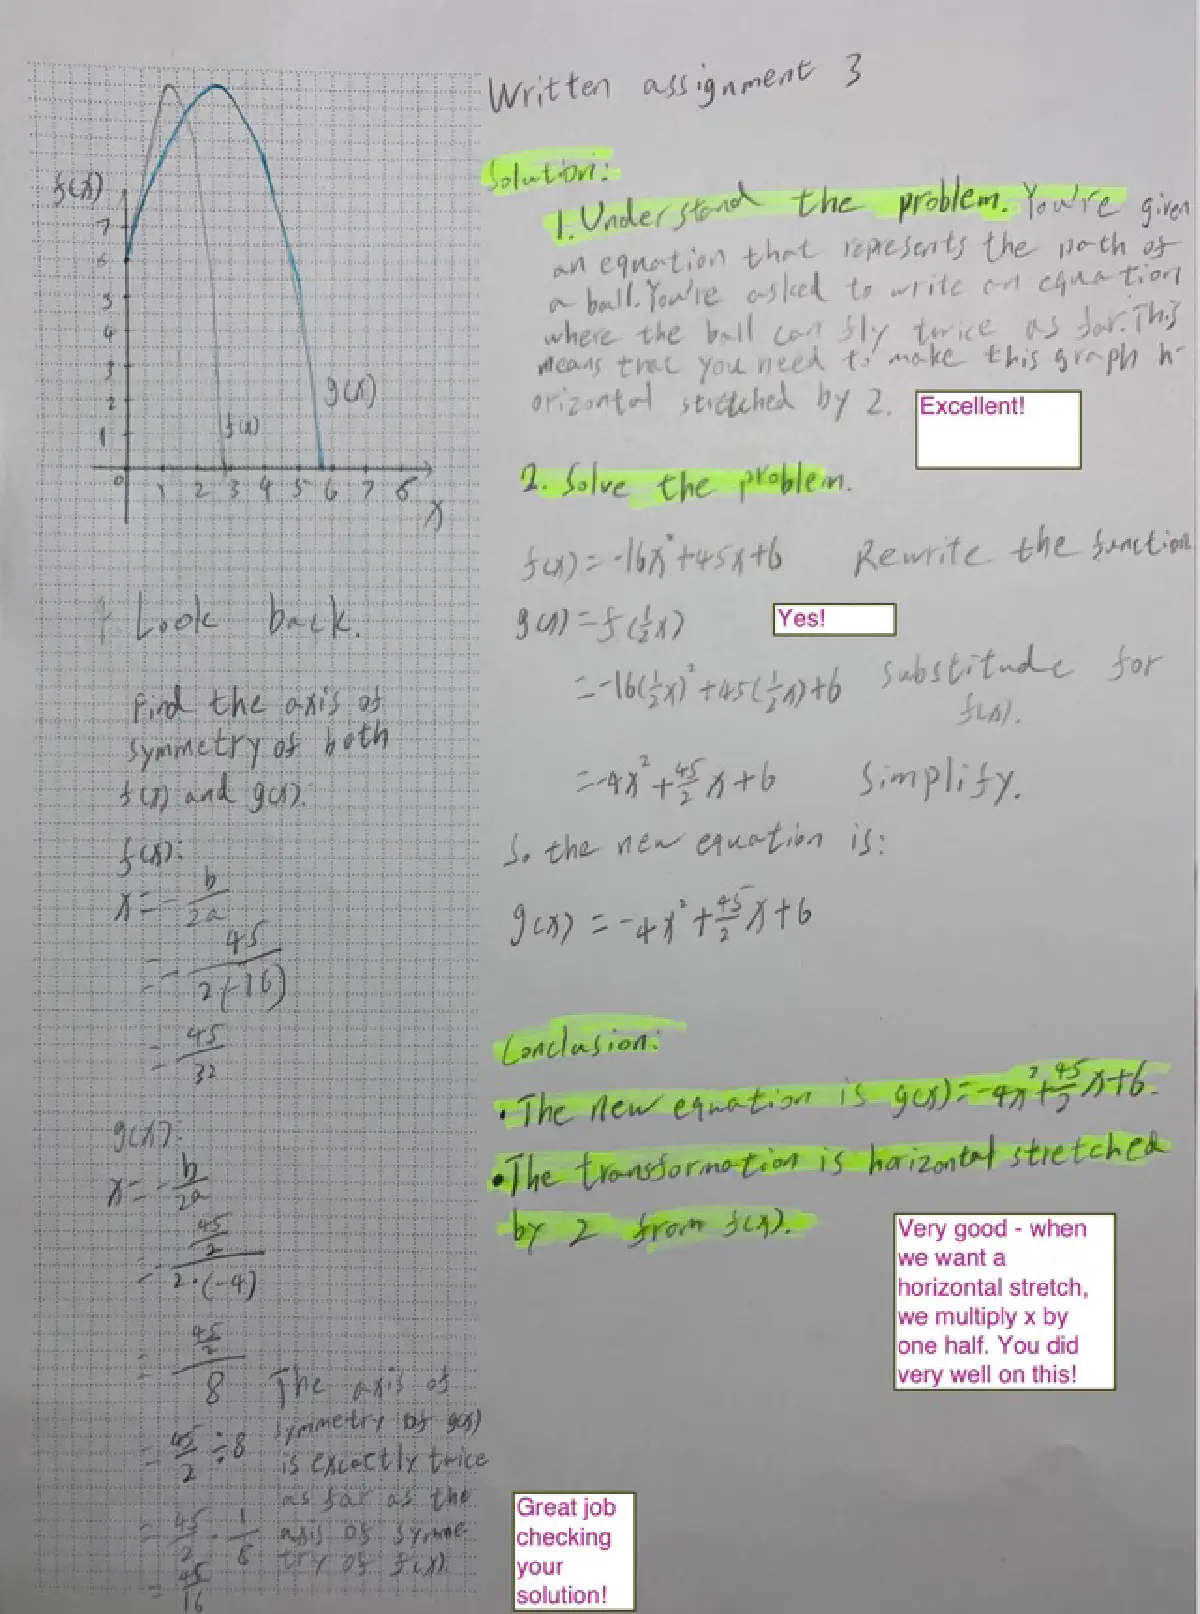 Written assignment 3
Solution:
1. Understand the problem. You're given
an equation that represents the path of
a ball. You're asked to write an equation
where the ball can fly twice as far. This
means that you need to make this graph h-
orizontal stretched by 2.
Excellent!
2. Solve the problem.
f(x) = -16x²+45x+6 Rewrite the function
g(x) = f(½x)
Yes!
= -16(½x)²+45(½x)+6 Substitude for
f(x).
= -4x²+45/2 x+6 Simplify.
So the new equation is:
g(x) = -4x²+45/2 x+6
Conclusion:
• The new equation is g(x)=-4x²+45/2 x+6.
• The transformation is horizontal stretched
by 2 from f(x).
Very good - when
we want a
horizontal stretch,
we multiply x by
one half. You did
very well on this!
f(x)
7
6
5
4
3
2
1
0 1 2 3 4 5 6 7 8
x
f(x)
g(x)
Look back.
Find the axis of
symmetry of both
f(x) and g(x).
f(x):
x = - b/2a
= - 45/2(-16)
= 45/32
g(x):
x = - b/2a
= - 45/2 / 2·(-4)
= 45/2 / 8
= 45/2 ÷ 8
= 45/2 · 1/8
= 45/16
The axis of
symmetry of g(x)
is exactly twice
as far as the
axis of symme
try of f(x)
Great job
checking
your
solution!